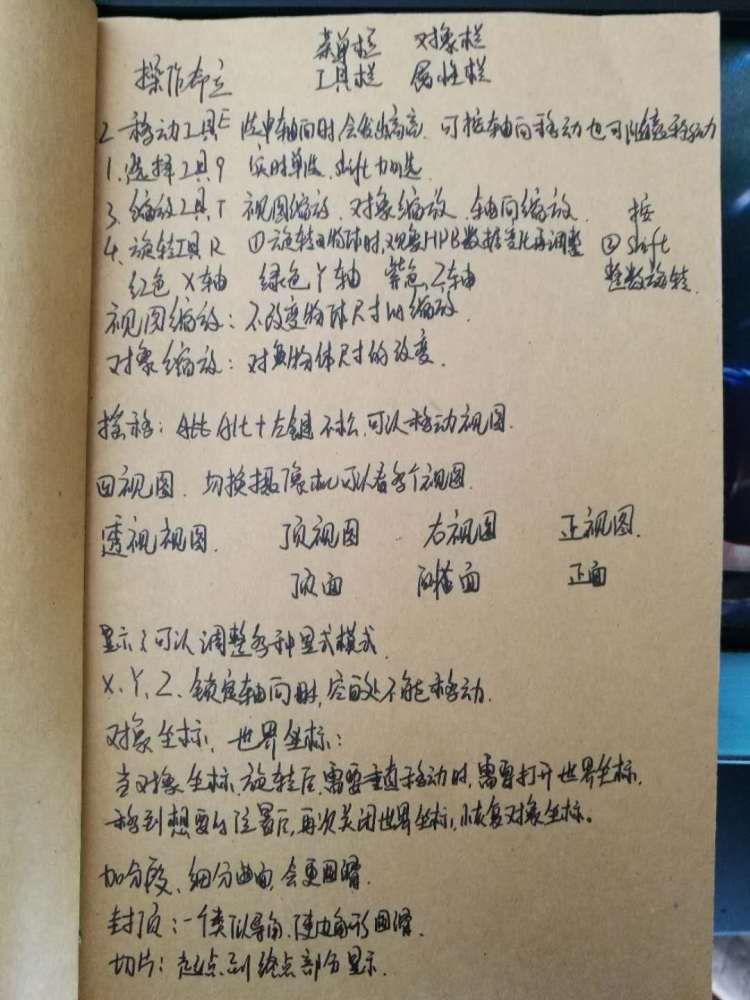 菜单栏 对象栏
操作布立 工具栏 属性栏
2 移动工具E 选中轴向时会发出高亮 可按轴向移动也可随意移动
1.选择工具9 实时单选, shift加选.
3.缩放工具T 视图缩放. 对象缩放. 轴向缩放. 按
4.旋转工具R ①旋转物体时,观察HPB数据变化再调整 ② shift
红色 X轴 绿色Y轴 紫色Z轴 整数旋转.
视图缩放:不改变物体尺寸的缩放.
对象缩放:对象物体尺寸的改变.
摇移: Alt Alt+左键不松,可以移动视图.
四视图. 切换摄像机可以看各个视图.
透视视图. 顶视图 右视图 正视图.
顶面 横面 正面
显示:可以调整各种显式模式.
X、Y、Z. 锁定轴向时,空白处不能移动.
对象坐标, 世界坐标:
当对象坐标,旋转后,需要垂直移动时,需要打开世界坐标.
移到想要的位置后,再次关闭世界坐标,恢复对象坐标。
加分段、细分曲面,会更圆滑.
封顶:一个类似导角,使边角形圆滑.
切片:起点到终点部分显示.